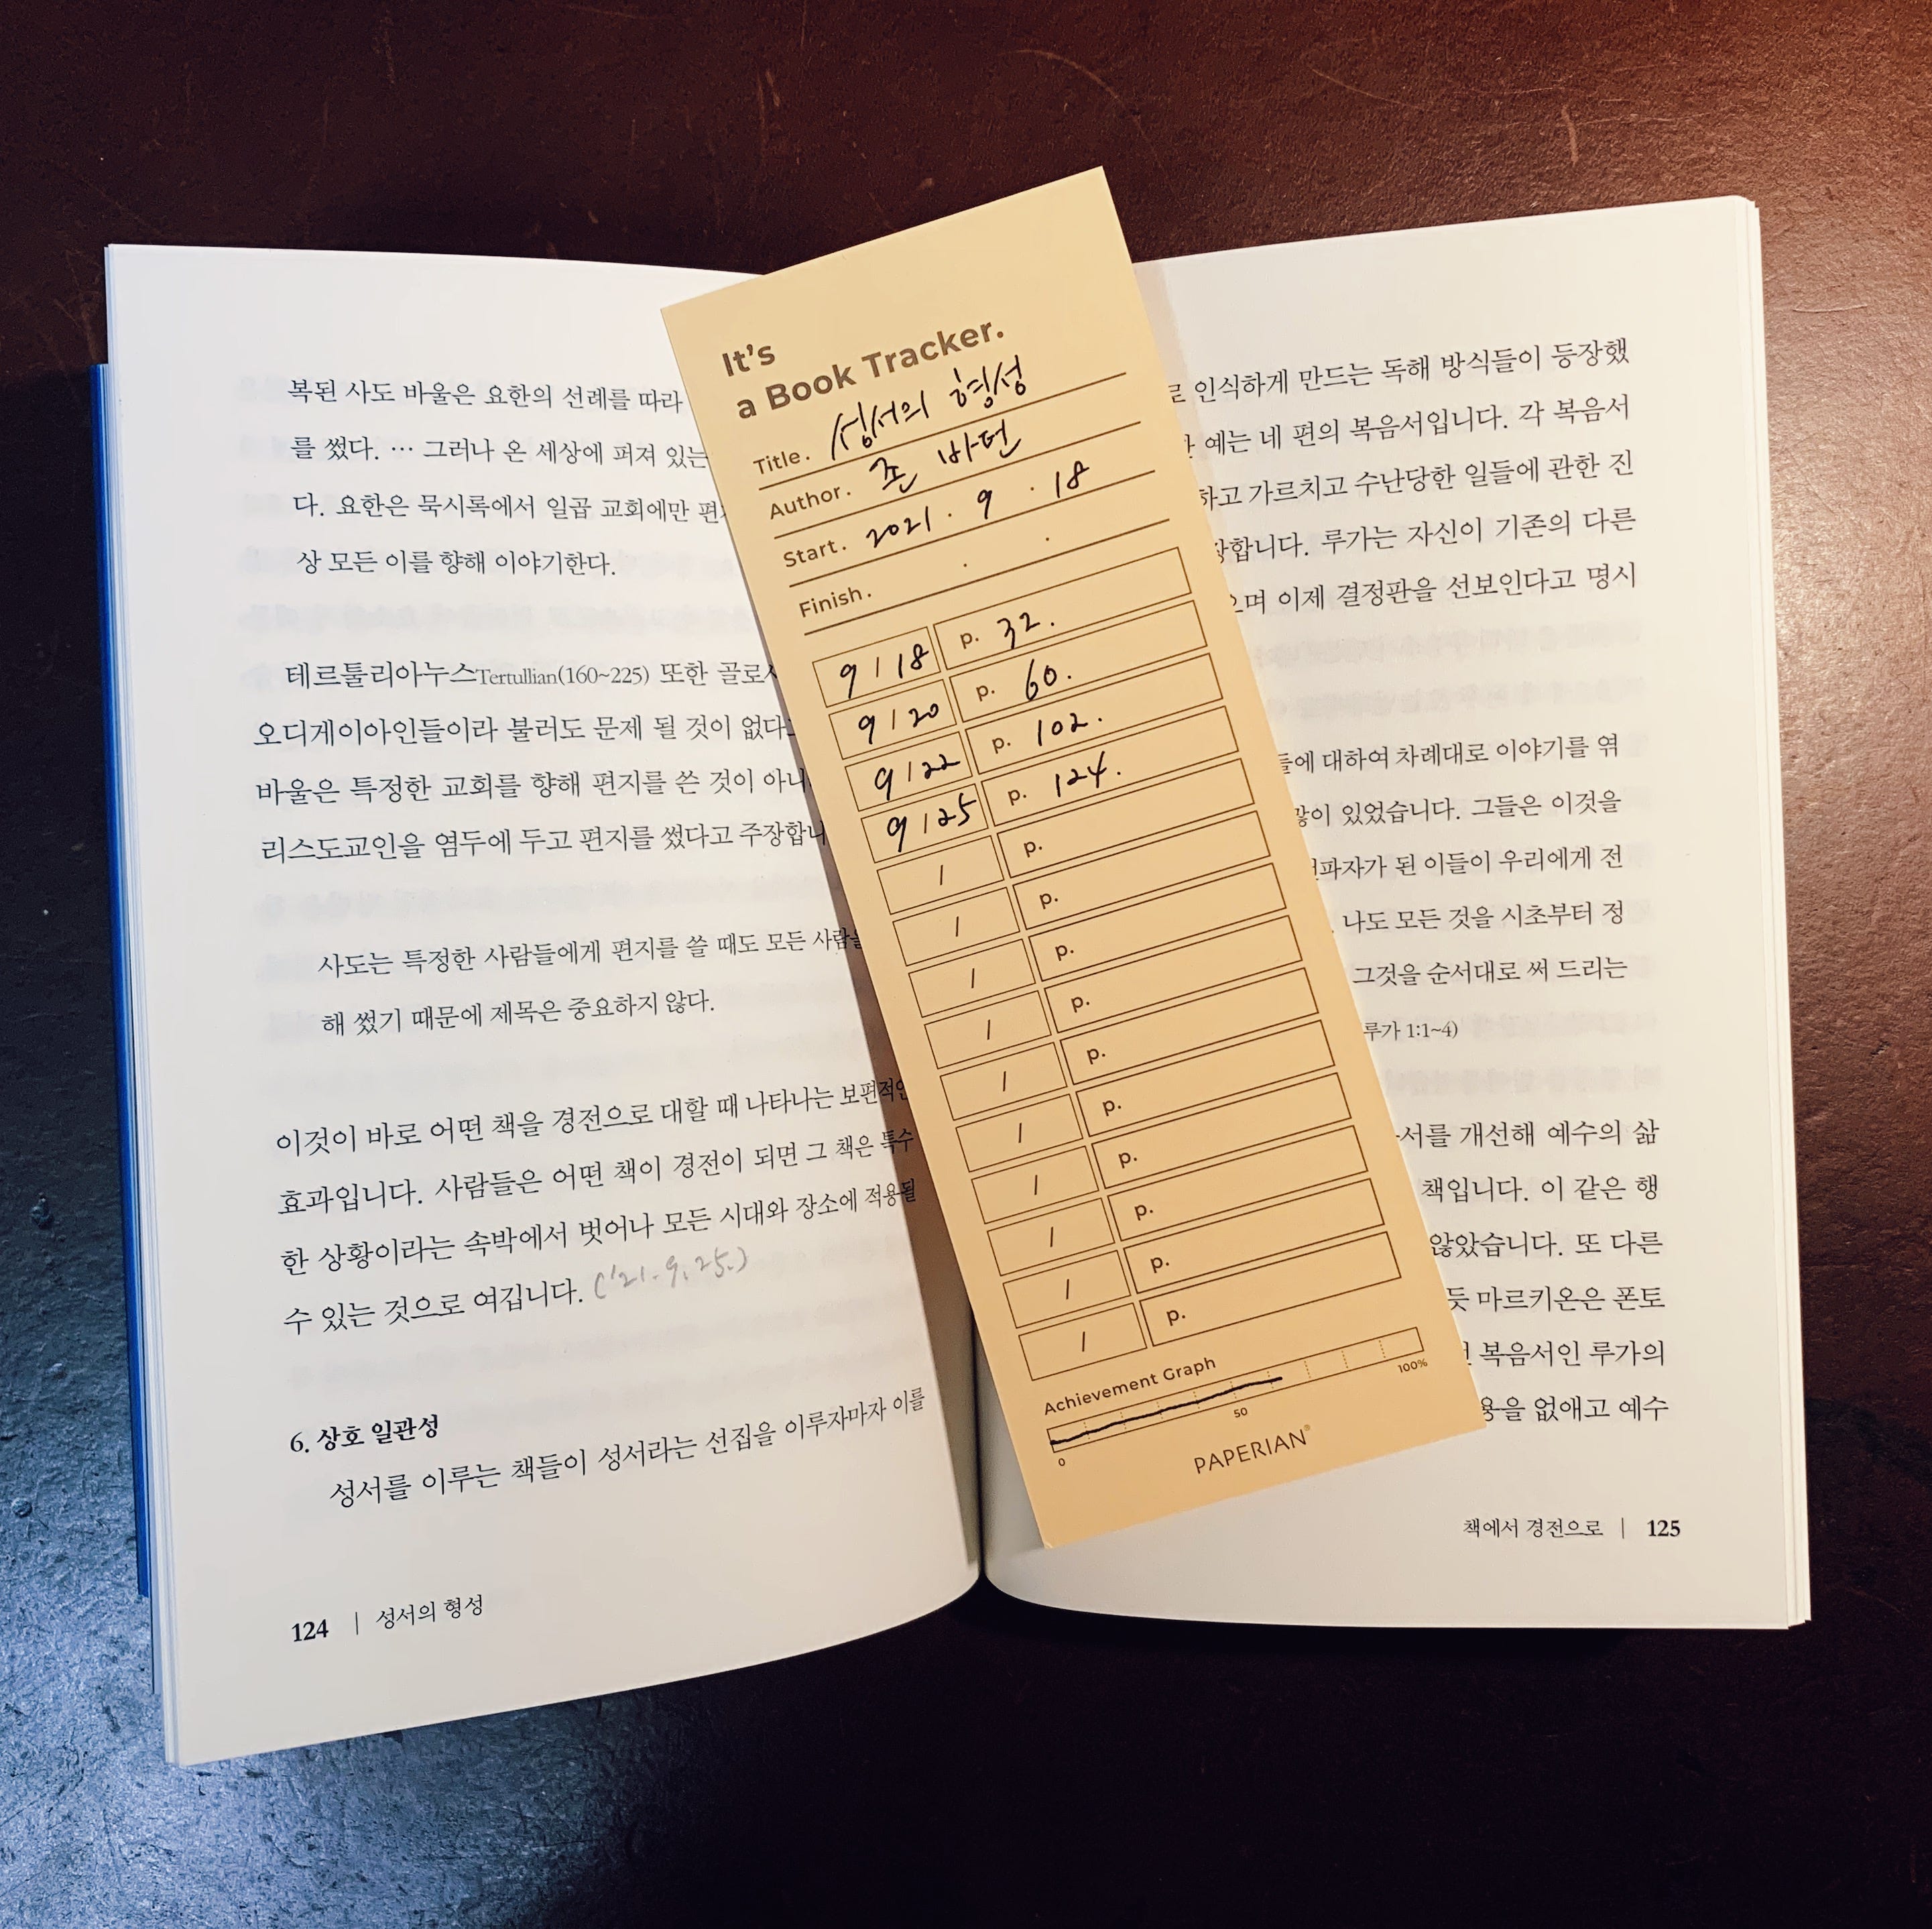 복된 사도 바울은 요한의 선례를 따라
를 썼다. … 그러나 온 세상에 퍼져 있는
다. 요한은 묵시록에서 일곱 교회에만
상 모든 이를 향해 이야기한다.
테르툴리아누스Tertullian(160~225) 또한
오디게이아인들이라 불러도 문제 될 것이 없다고
바울은 특정한 교회를 향해 편지를 쓴 것이
리스도교인을 염두에 두고 편지를 썼다고
사도는 특정한 사람들에게 편지를 쓸 때도 모든
해 썼기 때문에 제목은 중요하지 않다.
이것이 바로 어떤 책을 경전으로 대할 때 나타나는 보편적인
효과입니다. 사람들은 어떤 책이 경전이 되면 그 책은 특수
한 상황이라는 속박에서 벗어나 모든 시대와 장소에 적용될
수 있는 것으로 여깁니다. ('21. 9. 25.)
6. 상호 일관성
성서를 이루는 책들이 성서라는 선집을 이루자마자 이를
124 | 성서의 형성
It's
a Book Tracker.
Title. 성서의 형성
Author. 존 바턴
Start. 2021. 9. 18
Finish. . .
9 / 18 p. 32.
9 / 20 p. 60.
9 / 22 p. 102.
9 / 25 p. 124.
/ p.
/ p.
/ p.
/ p.
/ p.
/ p.
/ p.
/ p.
/ p.
/ p.
Achievement Graph
0 50 100%
PAPERIAN®
로 인식하게 만드는 독해 방식들이 등장했
예는 네 편의 복음서입니다. 각 복음서
하고 가르치고 수난당한 일들에 관한 진
루가는 자신이 기존의 다른
으며 이제 결정판을 선보인다고 명시
들에 대하여 차례대로 이야기를 엮
많이 있었습니다. 그들은 이것을
전파자가 된 이들이 우리에게 전
나도 모든 것을 시초부터 정
그것을 순서대로 써 드리는
루가 1:1~4)
개선해 예수의 삶
책입니다. 이 같은 행
않았습니다. 또 다른
듯 마르키온은 폰토
복음서인 루가의
없애고 예수
책에서 경전으로 | 125